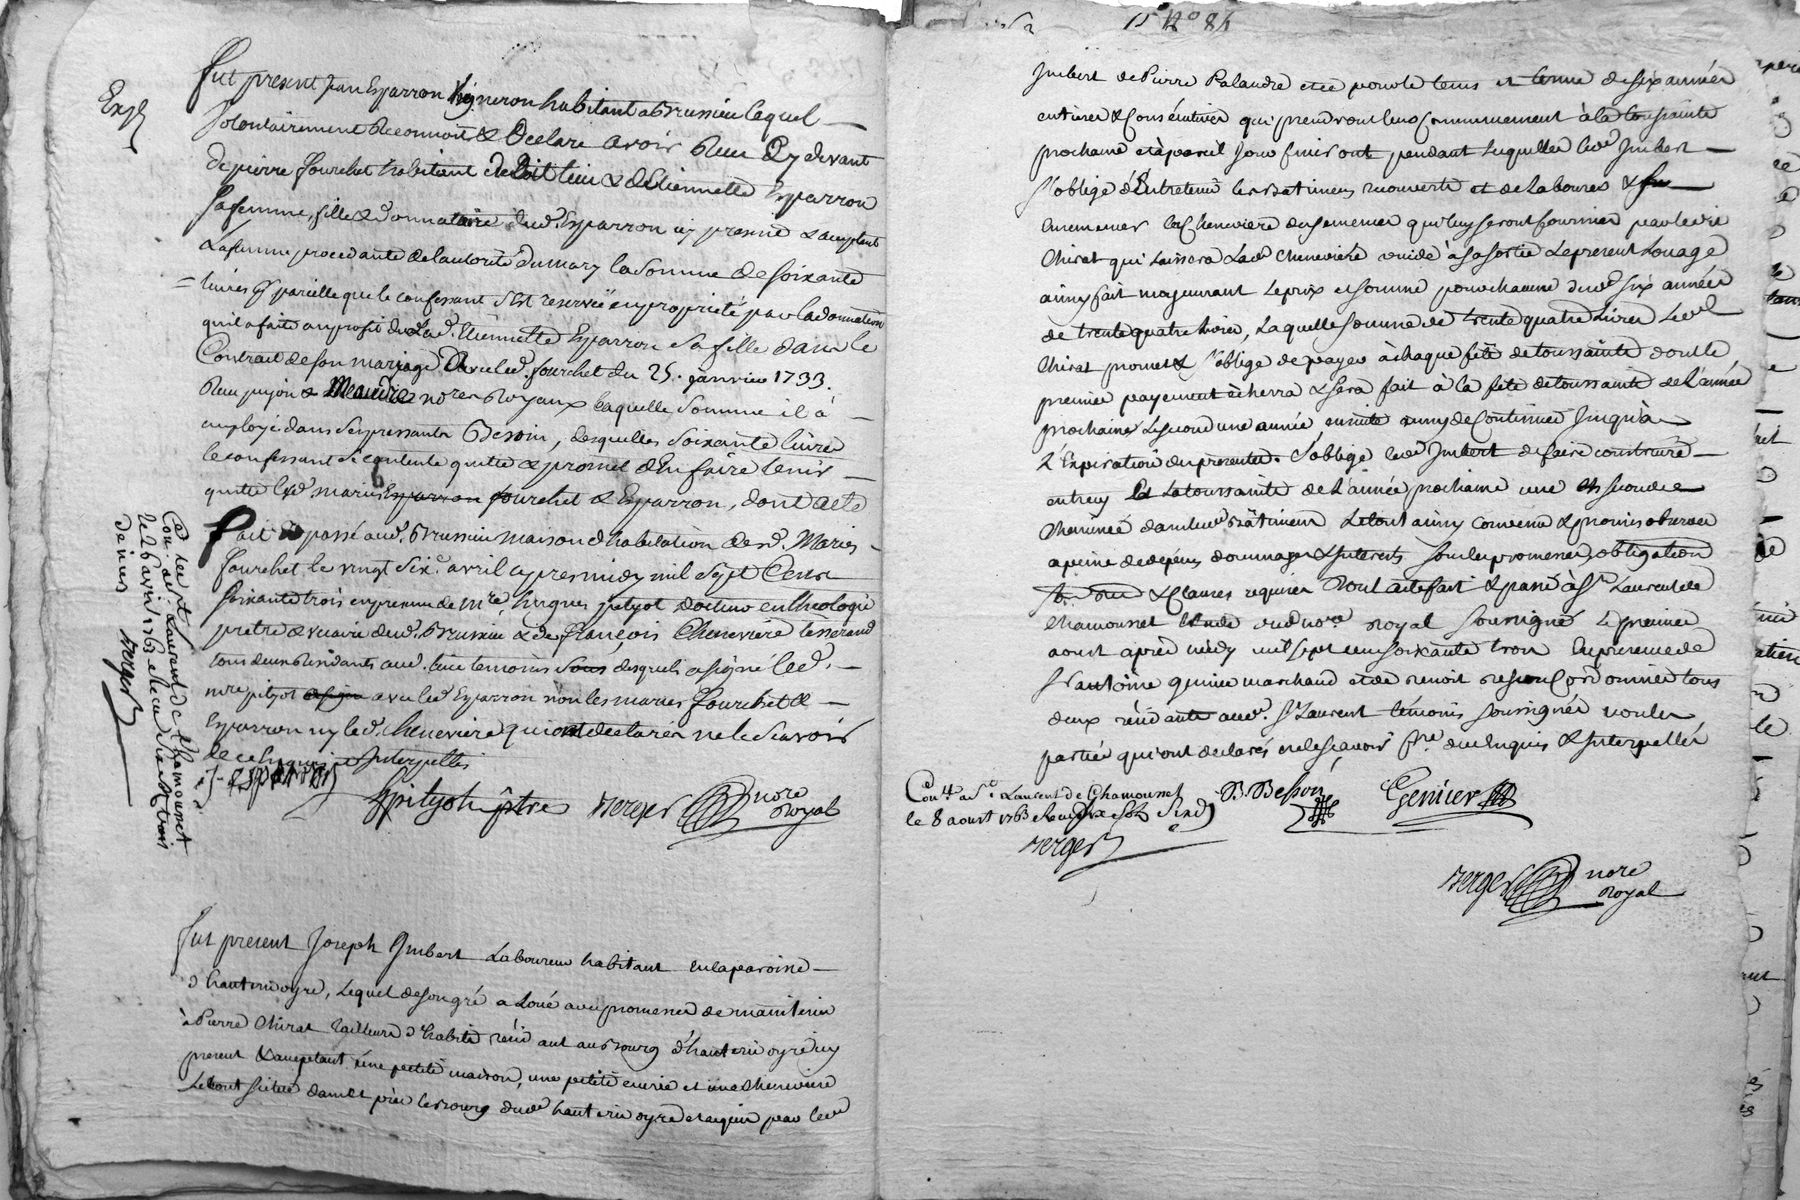 Exp.
Fut present Jean Esparron Vigneron habitant a Brussieu lequel
solontairement Reconnoit & Declare avoir Reçu Cy devant
de pierre fourchet habitant dudit lieu & d'Etiennette Esparron
sa femme, fille & donnataire dud. Esparron icy presens & acceptants
La femme procedante de l'autorité du mary la Somme de soixante
livres pareille que le confessant s'est reservée en propriété par la donnation
qu'il a faite au profit de Lad. Etiennette Esparron sa fille dans le
Contrat de son mariage Avec led. fourchet du 25. janvier 1733.
Reçu pujon & nores Royaux laquelle Somme il à
employé dans ses pressants Besoin, desquelles soixante livres
le confessant se contente quitte & promet d'En faire tenir
quitte lesd mariés fourchet & Esparron, dont acte
Fait & passé aud. Brussieu maison d'habitation desd. Mariés
fourchet le vingt six. avril apres midy mil sept Cents
soixante trois en presence de mre. hugues pityot docteur en theologie
pretre & vicaire dud. Brussieu & de françois Cheneviere tisserand
tous deux Residants aud. lieu temoins desquels a signé led.
mre pityot avec led Esparron non les mariés fourchet &
Esparron ny led. Cheneviere qui ont declarés ne le scavoir
de ce Enquis & Interpellés
J. esparron
H pityot ptre Berger nore
Royal
Con. a st Laurent de Chamousset
le 26 avril 1763 Reçu
deniers Berger
Fut present Joseph Imbert Laboureur habitant en la paroisse
d'hauterivoyre, Lequel de son gré a Loué avec promesse de maintenir
à Pierre Chirat tailleur d'habits residant au Bourg d'hauterivoyre icy
present & acceptant une petite maison, une petite ecurie et une cheneviere
Le tout situé dans & près le Bourg dud hauterivoyre et acquis par led
15 No 84
Imbert de Pierre Palandre et ce pour le tems et terme de six années
entieres & Consécutives qui prendront leur Commencement à la toussainte
prochaine et à pareil jour finiront, pendant lesquelles led Imbert
s'oblige d'Entretenir les Batimens recouverts et de Labourer &
ensemencer la Cheneviere de semences qui luy seront fournies par led
Chirat qui Laissera Lad Cheneviere vuide à sa sortie Le present Louage
ainsy fait moyennant Le prix et somme pour chacune desd six années
de trente quatre Livres, Laquelle somme de trente quatre Livres Led
Chirat promet & s'oblige de payer à chaque fête de toussainte dont le
premier payement écherra & sera fait à la fete de toussainte de L'année
prochaine Le second une année ensuite ainsy de Continuer jusqu'à
L'Expiration du present. S'oblige led Imbert de faire construire
entre cy & La toussainte de L'année prochaine une
Cheminée dans led Bâtiment Le tout ainsy convenu & promis observer
a peine de depens dommages & interets sous les promesses, obligation
& Clauses requises dont acte fait & passé à St Laurent de
Chamousset Etude dud nore royal soussigné Le premier
aoust après midy mil sept cens soixante trois En presence de
Sr antoine genier marchand et de Benoit Besson Cordonnier tous
deux residants aud. St Laurent témoins soussignés non les
parties qui ont declarés ne le scavoir fre. de ce Enquis & Interpellés
Conlé a St Laurent de Chamousset
le 8 aoust 1763 Reçu
Berger
B. Besson Genier
Berger nore
Royal